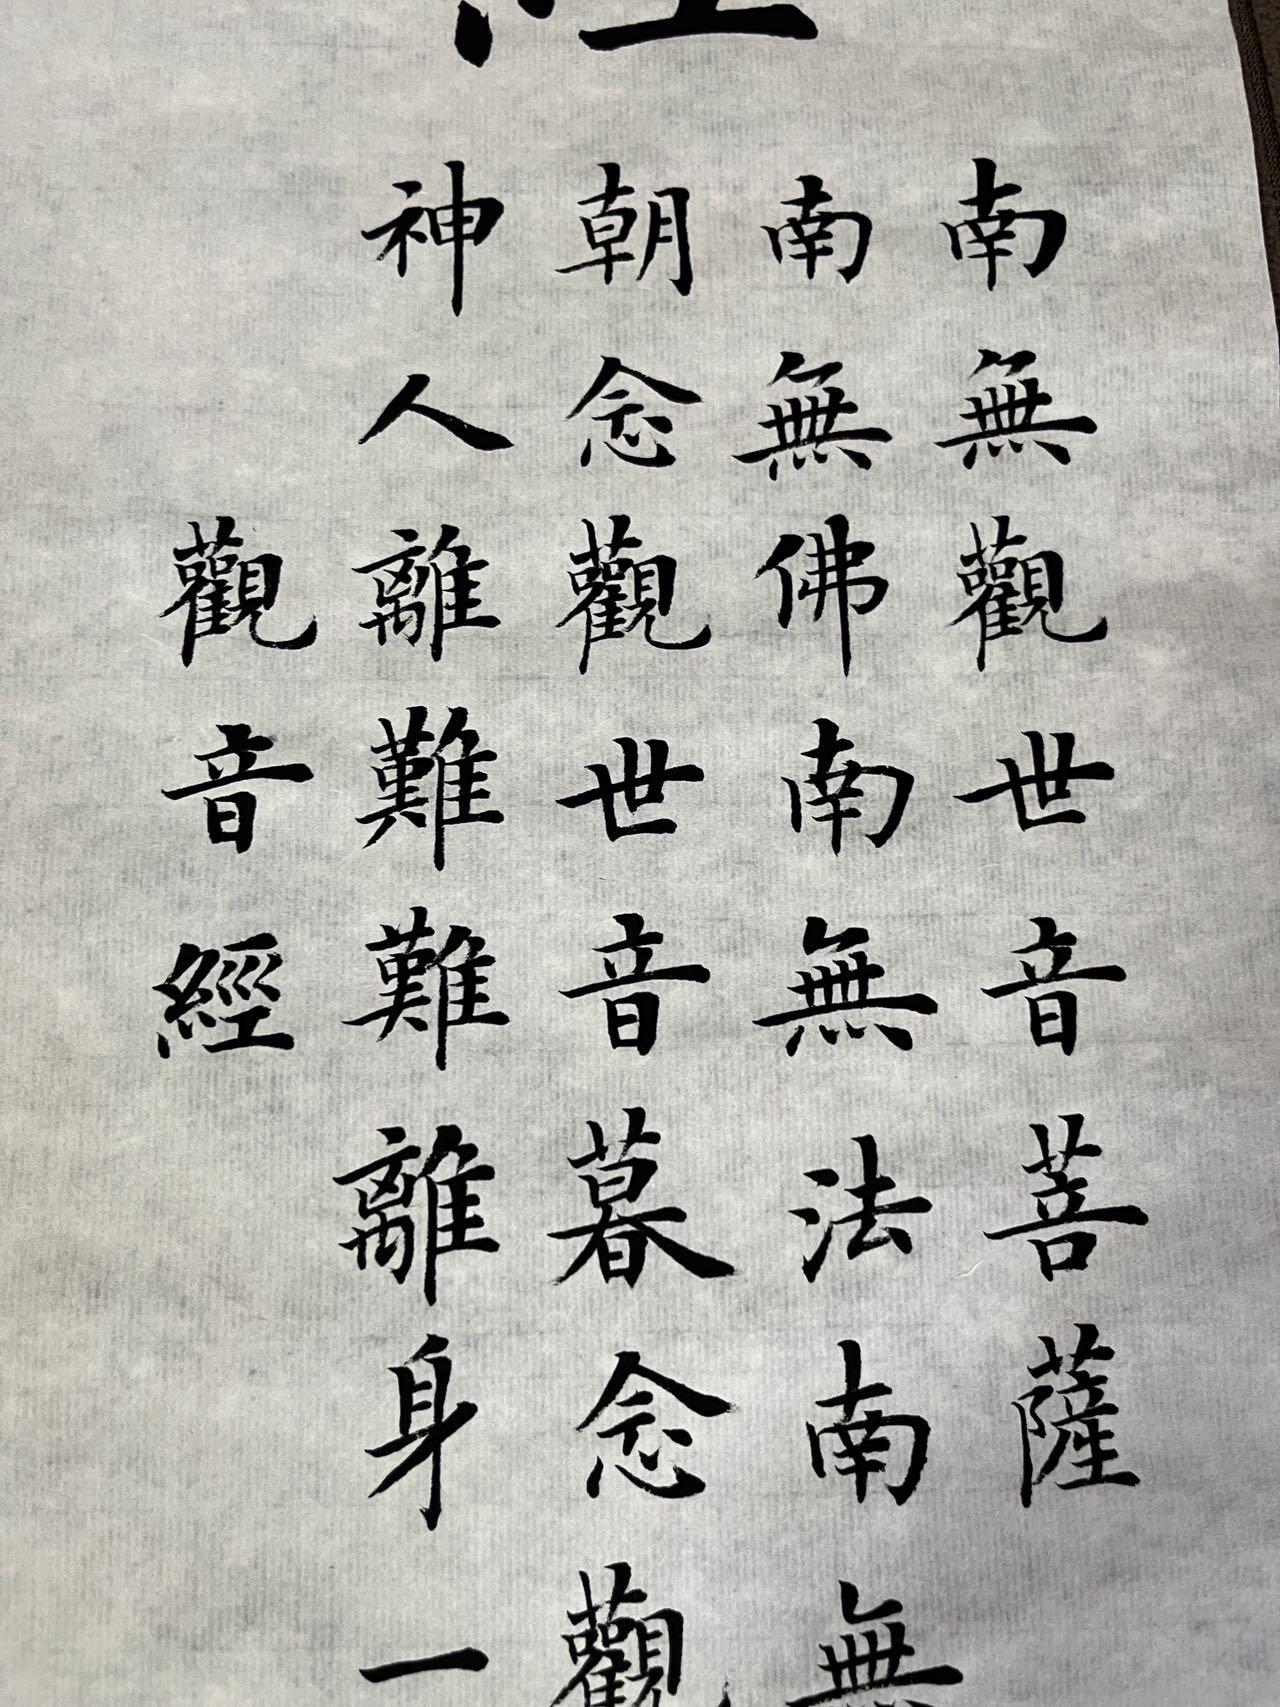 南無觀世音菩薩
南無佛南無法南無
朝念觀世音暮念觀
神人離難難離身一
觀音經